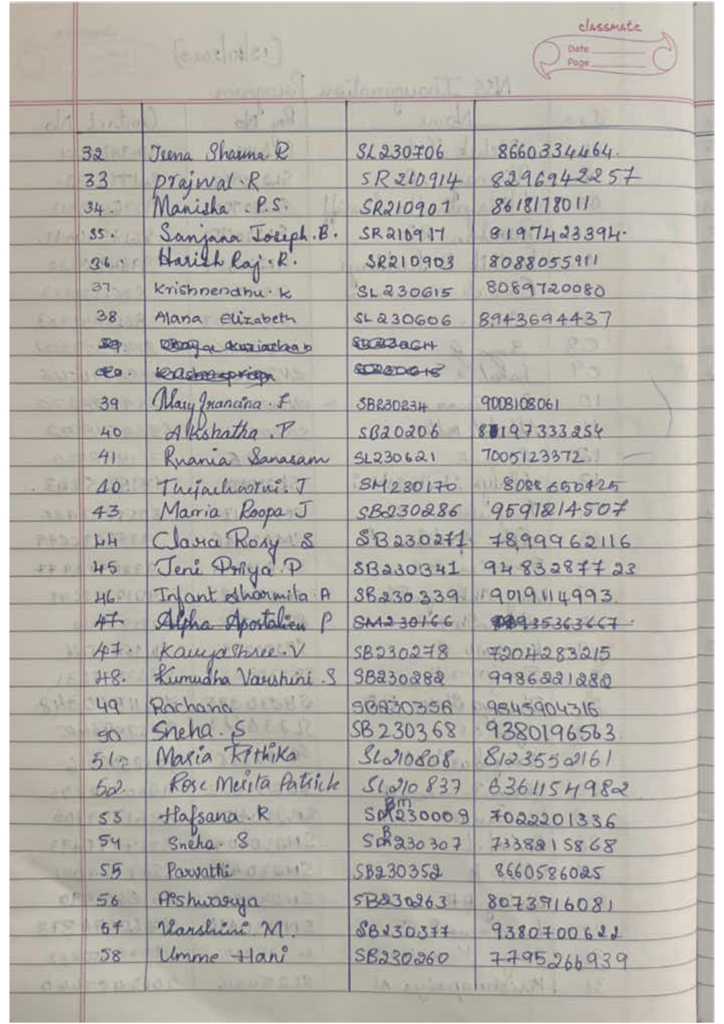 classmate
Date
Page
32 Teena Sharma R SL230706 8660334464.
33 Prajwal.R SR210914 8296942257
34. Manisha .P.S. SR210907 8618178011
35. Sanjana Joseph.B. SR210917 8197423394.
36. Harish Raj.R. SR210903 8088055911
37. Krishnendhu.K SL230615 8089720080
38 Alana Elizabeth SL230606 8943694437
39 Mary Francina.F SB230234 9008108061
40 Akshatha.P SB20206 8197333254
41 Ruania Sanasam SL230621 7005123372
40 Thejashwini.J SM230170 8088650425
43 Marria Roopa J SB230286 9591214507
44 Clara Rosy S SB230271 7899962116
45 Jeni Priya P SB230341 9483287723
46. Infant Sharmila A SB230339 9019114993
47. Alpha Apostalien P SM230166 935363667
47. Kavyashree.V SB230278 7204283215
48. Kumudha Varshini.S SB230282 9986221282
49 Rachana SB230356 9845904316
50 Sneha.S SB230368 9380196563
51 Maria Kithika SL210808 8123552161
52 Rose Merita Patrick SL210837 6361154982
53 Hafsana.R BM230009 7022201336
54 Sneha.S SB230307 7338215868
55 Parvathi SB230352 8660586025
56 Aishwarya SB230263 8073916081
57 Varshini M. SB230377 9380700622
58 Umme Hani SB230260 7795266939